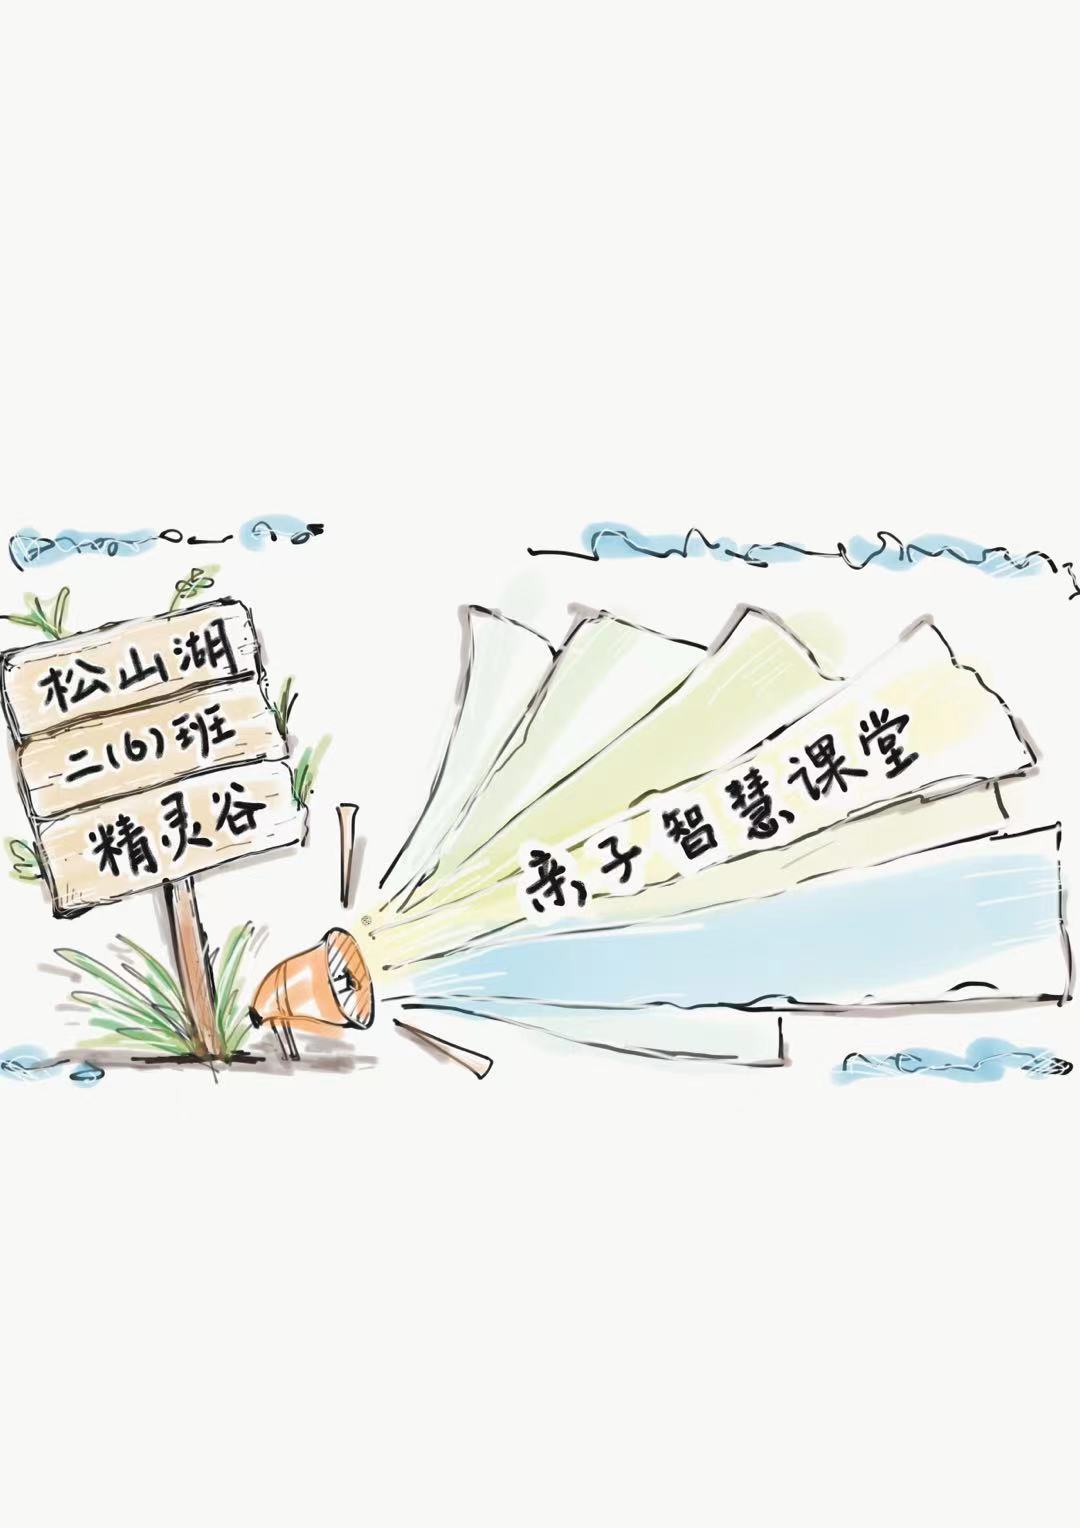 松山湖
二(6)班
精灵谷
亲子智慧课堂